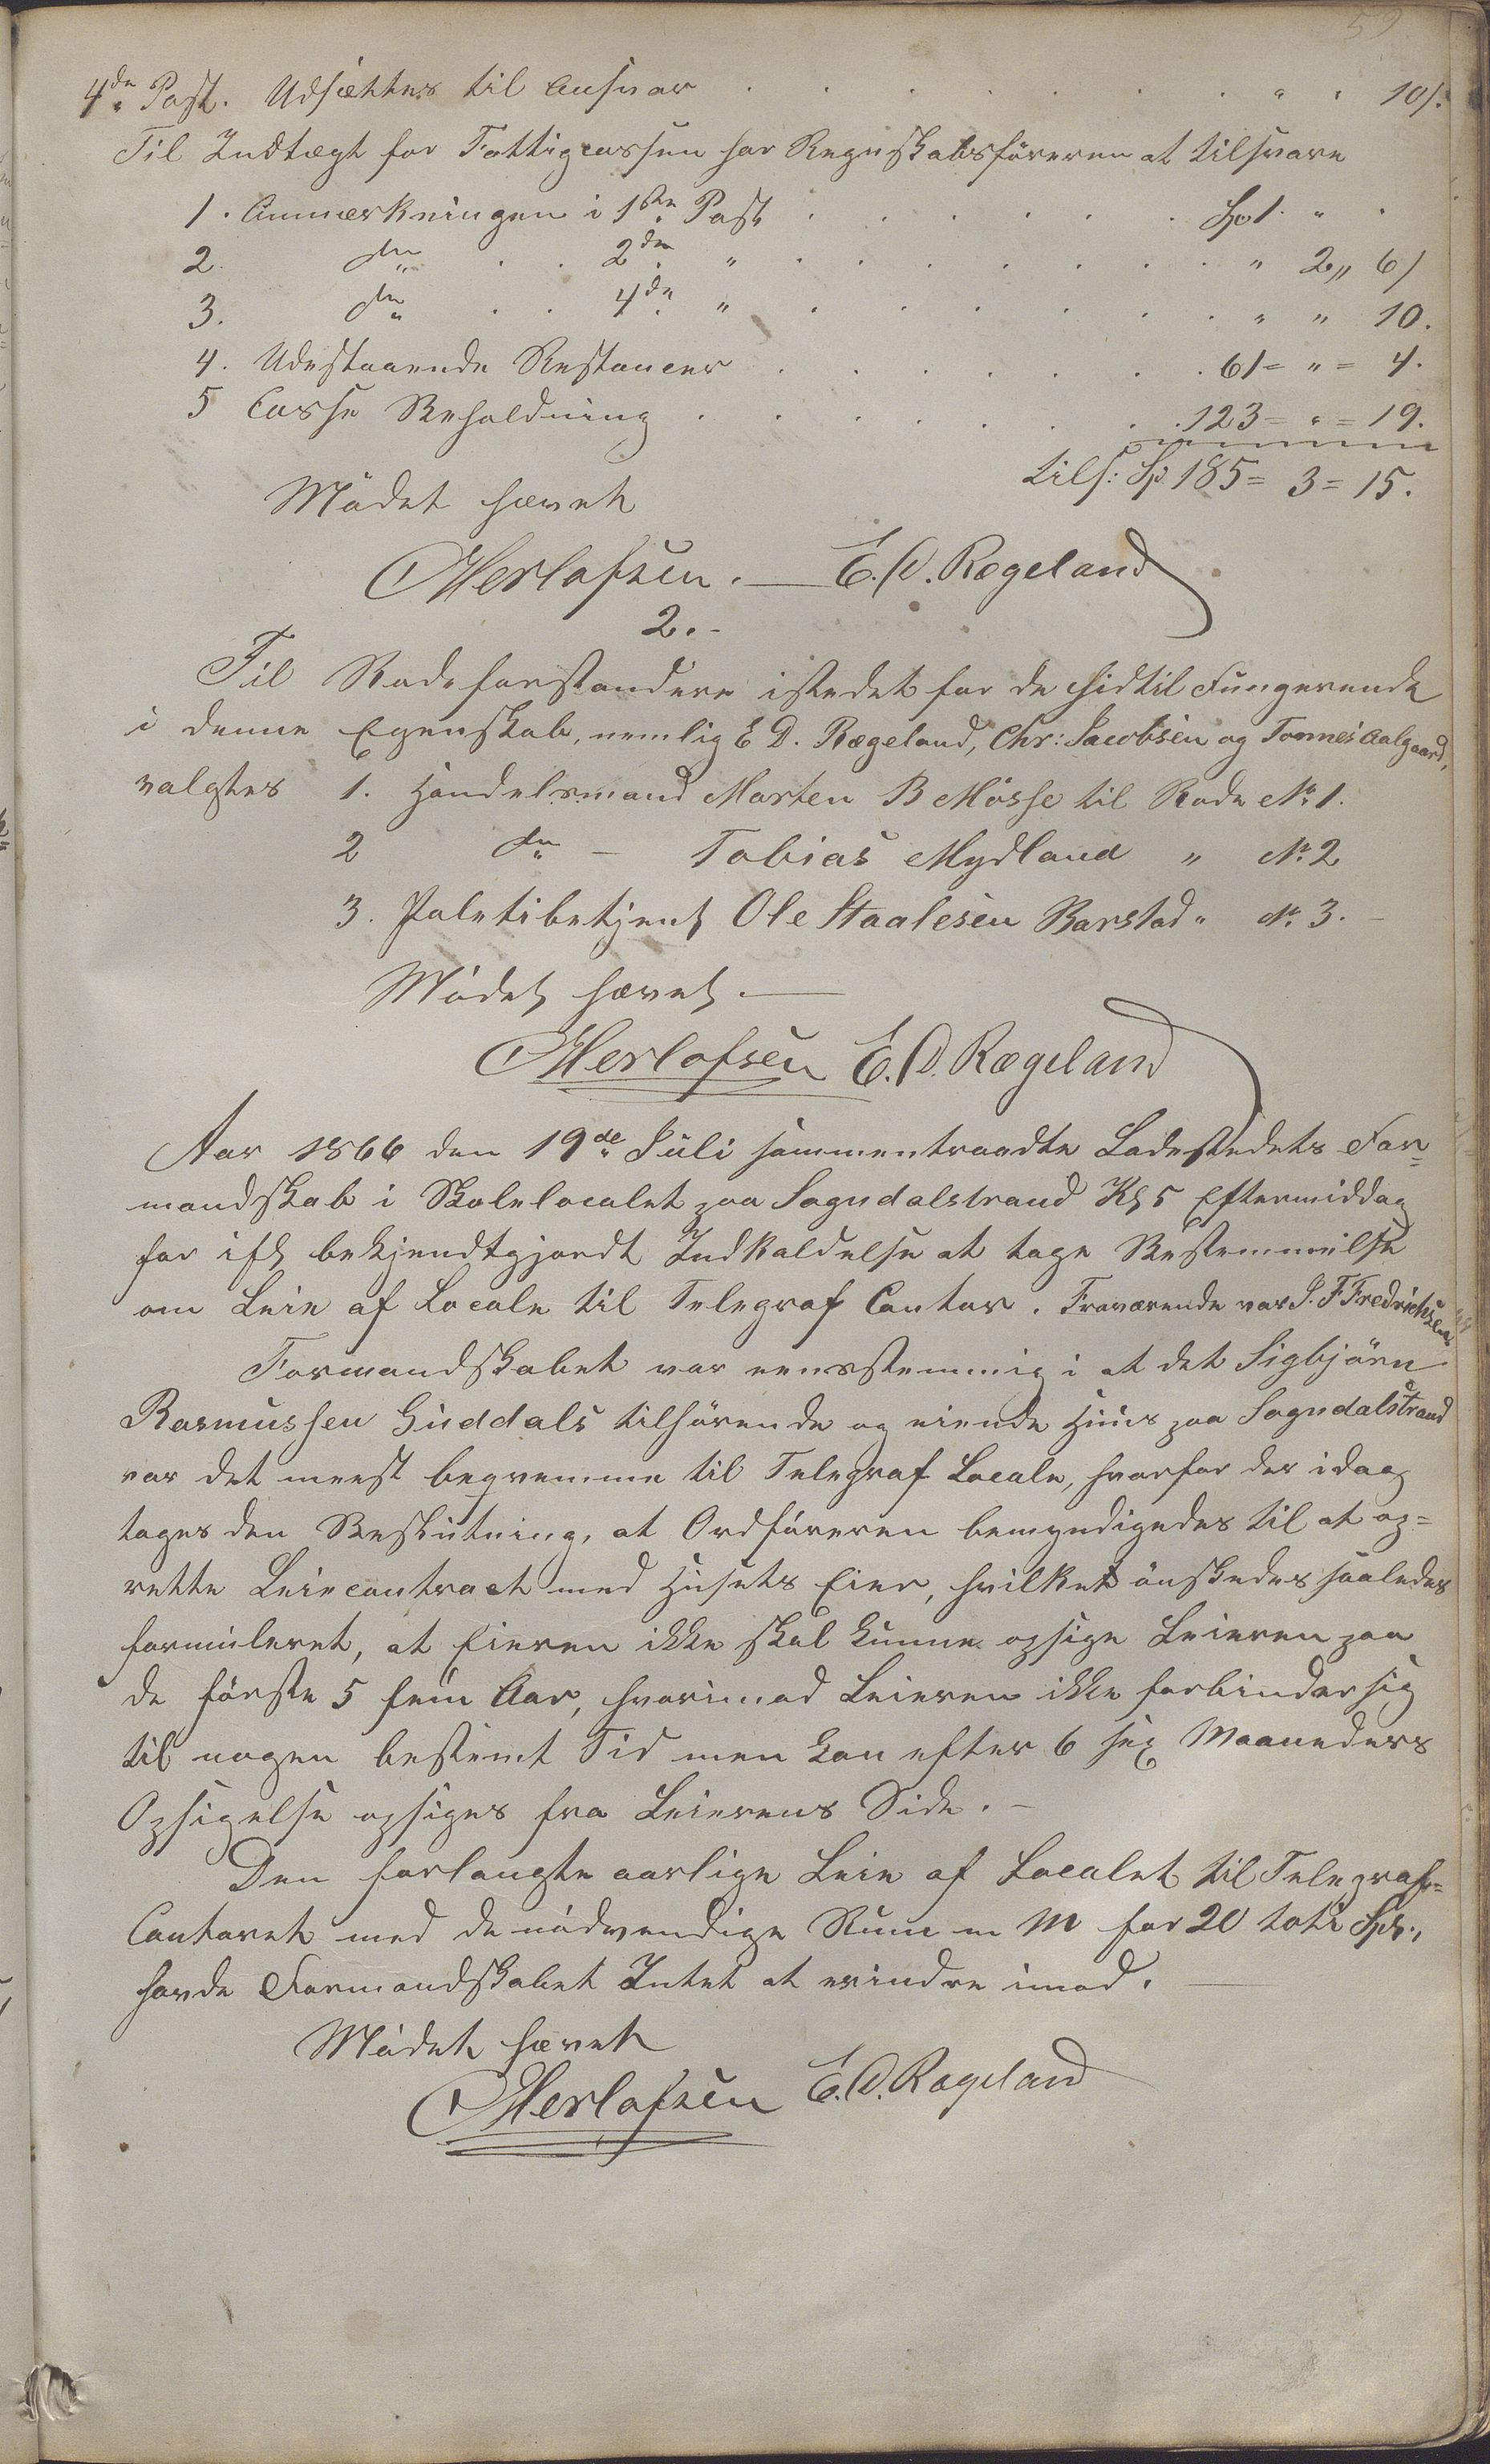 59
4de Post. Udsættes til Ansvar . . . . . . . " " 10/.
Til Indtægt for Fattigcassen har Regnskabsføreren at tilsvare
1. Anmærkningen i 1ste Post . . . . . . Sp 1. " .
2. do . . 2den " . . . . . . " 2 " 6/
3. do . . 4de " . . . . . . " " 10.
4. Udestaaende Restancer . . . . . . 61 = " = 4.
5 Casse Beholdning . . . . . . 123 = " = 19.
tils: Sp 185 = 3 = 15.
Mödet hævet
Herlofsen. — E. D. Rægeland
2. -
Til Rodeforstandere istedet for de hidtil Fungerende
i denne Egenskab, nemlig E D. Rægeland, Chr: Jacobsen og Tonnes Aalgaard,
valgtes 1. Handelsmand Morten B Mosse til Rode No 1.
2 do — Tobias Mydland " No 2
3. Politibetjent Ole Staalesen Barstad " No 3. -
Mödet hævet. —
Herlofsen E. D. Rægeland
Aar 1866 den 19de Juli sammentraadte Ladestedets For=
mandskab i Skolelocalet paa Sogndalstrand Kl 5 Eftermiddag
for ifl bekjendtgjordt Indkaldelse at tage Bestemmelse
om Leie af Locale til Telegraf Contor. Fraværende var J. F Fredrichsen
Formandskabet var eensstemmig i at det Sigbjörn
Rasmussen Guddals tilhörende og eiende Huus paa Sogndalstrand
var det meest beqvemme til Telegraf Locale, hvorfor der idag
toges den Beslutning, at Ordföreren bemyndigedes til at op=
rette Leiecontract med Husets Eier, hvilket önskedes saaledes
formuleret, at Eieren ikke skal kunne opsige Leieren paa
de förste 5 fem Aar, hvorimod Leieren ikke forbinder sig
til nogen bestemt Tid men kan efter 6 sex Maaneders
Opsigelse opsiges fra Leierens Side. -
Den forlangte aarlige Leie af Localet til Telegraf=
Contoret med de nödvendige Rum m M for 20 toti Spd.,
havde Formandskabet Intet at erindre imod. —
Mödet hævet
Herlofsen E. D. Rægeland